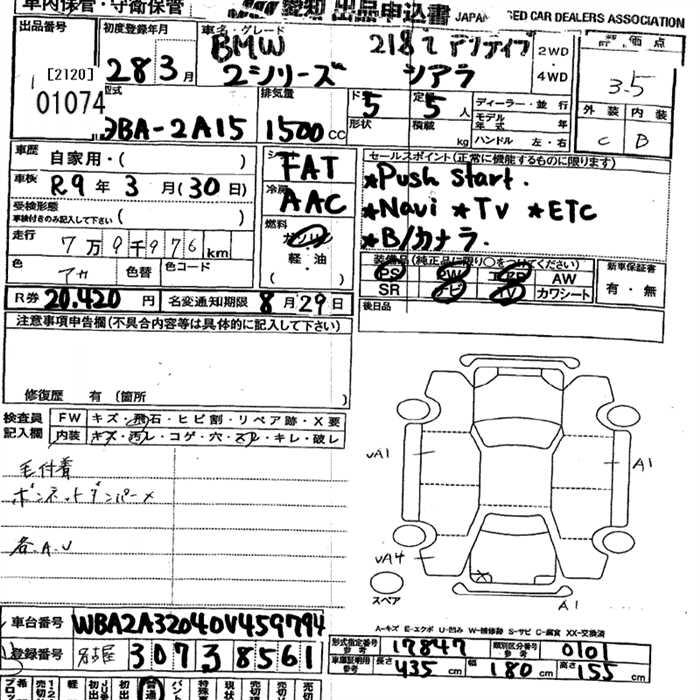 車内保管・守衛保管
愛知 出品申込書 JAPAN USED CAR DEALERS ASSOCIATION
出品番号
[2120]
01074
初度登録年月
28 3月
車名・グレード
BMW 218i アクティブ
2シリーズ
2WD
・
4WD
評価点
3.5
外装 内装
C B
型式
DBA-2A15
排気量
1500cc
ドア
5
形状
定員
5人
積載 kg
ディーラー・並行
モデル年式 年
ハンドル 左・右
車歴 自家用・( )
車検 R9年3月(30日)
受検形態
車検付きのみ記入して下さい ( )
走行 7万9千976km
色 アカ 色替 色コード
シフト
FAT
冷房
AAC
燃料
ガソリン
軽・油
( )
セールスポイント(正常に機能するものに限ります)
*Push start.
*Navi *TV *ETC
*B/カメラ.
装備品(純正品に限り○をつけてください)
PS PW AW
SR ナビ TV カワシート
新車保証書
有・無
後日品
R券 20,420円 名変通知期限 8月29日
注意事項申告欄(不具合内容等は具体的に記入して下さい)
修復歴 有(箇所 )
検査員記入欄
FW キズ・飛石・ヒビ割・リペア跡・X要
内装 キズ・汚レ・コゲ・穴・スレ・キレ・破レ
毛付着
ボンネットダンパー×
各A.U
UA1
A1
UA4
A1
スペア
A-キズ E-エクボ U-凹み W-補修跡 S-サビ C-腐食 XX-交換済
車台番号 WBA2A32040V459794
登録番号 名古屋 307 3 8561
形式指定番号 参考 17847 類別区分番号 参考 0101
車庫証明用 参考 長さ 435cm 幅 180cm 高さ 155cm